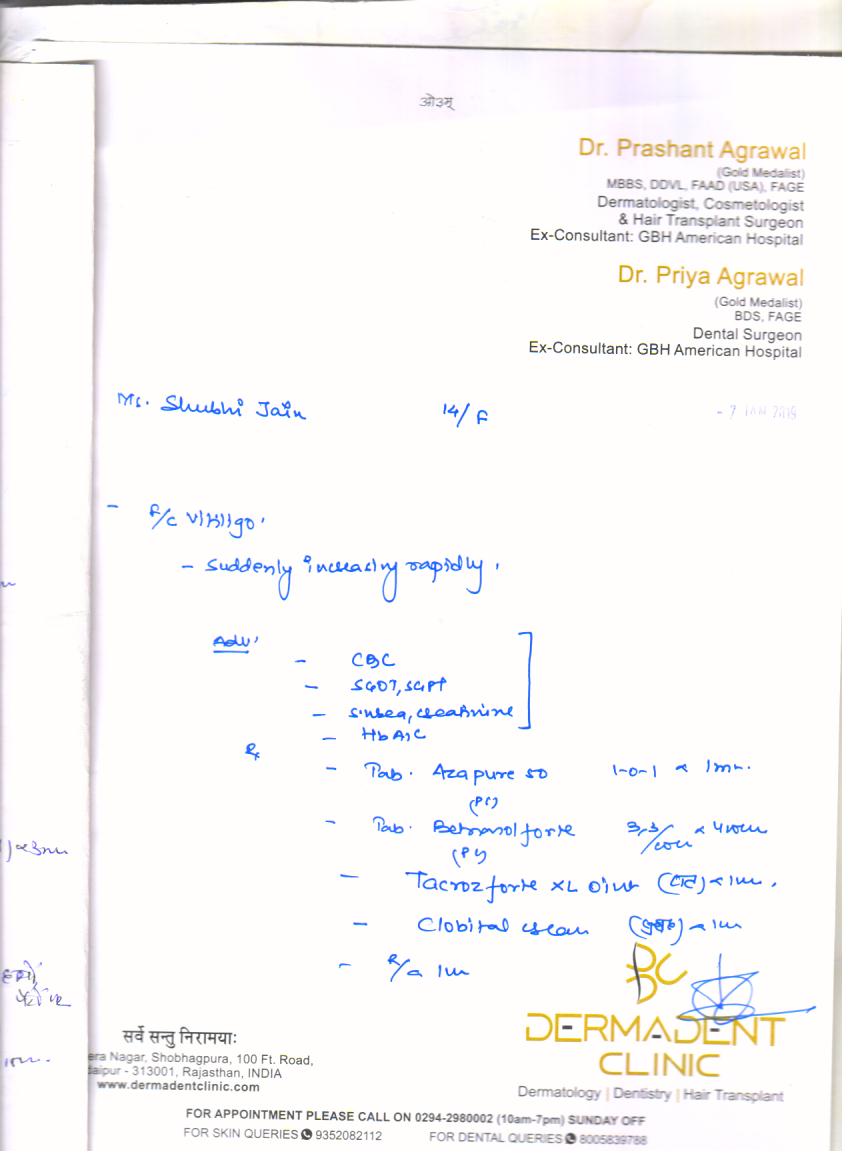 ओ३म्
Dr. Prashant Agrawal
(Gold Medalist)
MBBS, DDVL, FAAD (USA), FAGE
Dermatologist, Cosmetologist
& Hair Transplant Surgeon
Ex-Consultant: GBH American Hospital
Dr. Priya Agrawal
(Gold Medalist)
BDS, FAGE
Dental Surgeon
Ex-Consultant: GBH American Hospital
Ms. Shubhi Jain 14/F - 7 JAN 2019
- F/C Vitiligo
- Suddenly increasing rapidly.
Adv.
- CBC
- SGOT, SGPT
- S. urea, creatinine
- HbA1C
Rx
- Tab. Azapure 50 1-0-1 x 1m
- Tab. Betnesol forte 3,3/ x 4
- Tacroz forte XL Oint (रात) x 1m.
- Clobital cream (सुबह) x 1m
- R/a 1m
DERMADENT
CLINIC
Dermatology | Dentistry | Hair Transplant
सर्वे सन्तु निरामयाः
era Nagar, Shobhagpura, 100 Ft. Road,
daipur - 313001, Rajasthan, INDIA
www.dermadentclinic.com
FOR APPOINTMENT PLEASE CALL ON 0294-2980002 (10am-7pm) SUNDAY OFF
FOR SKIN QUERIES 9352082112 FOR DENTAL QUERIES 8005839788